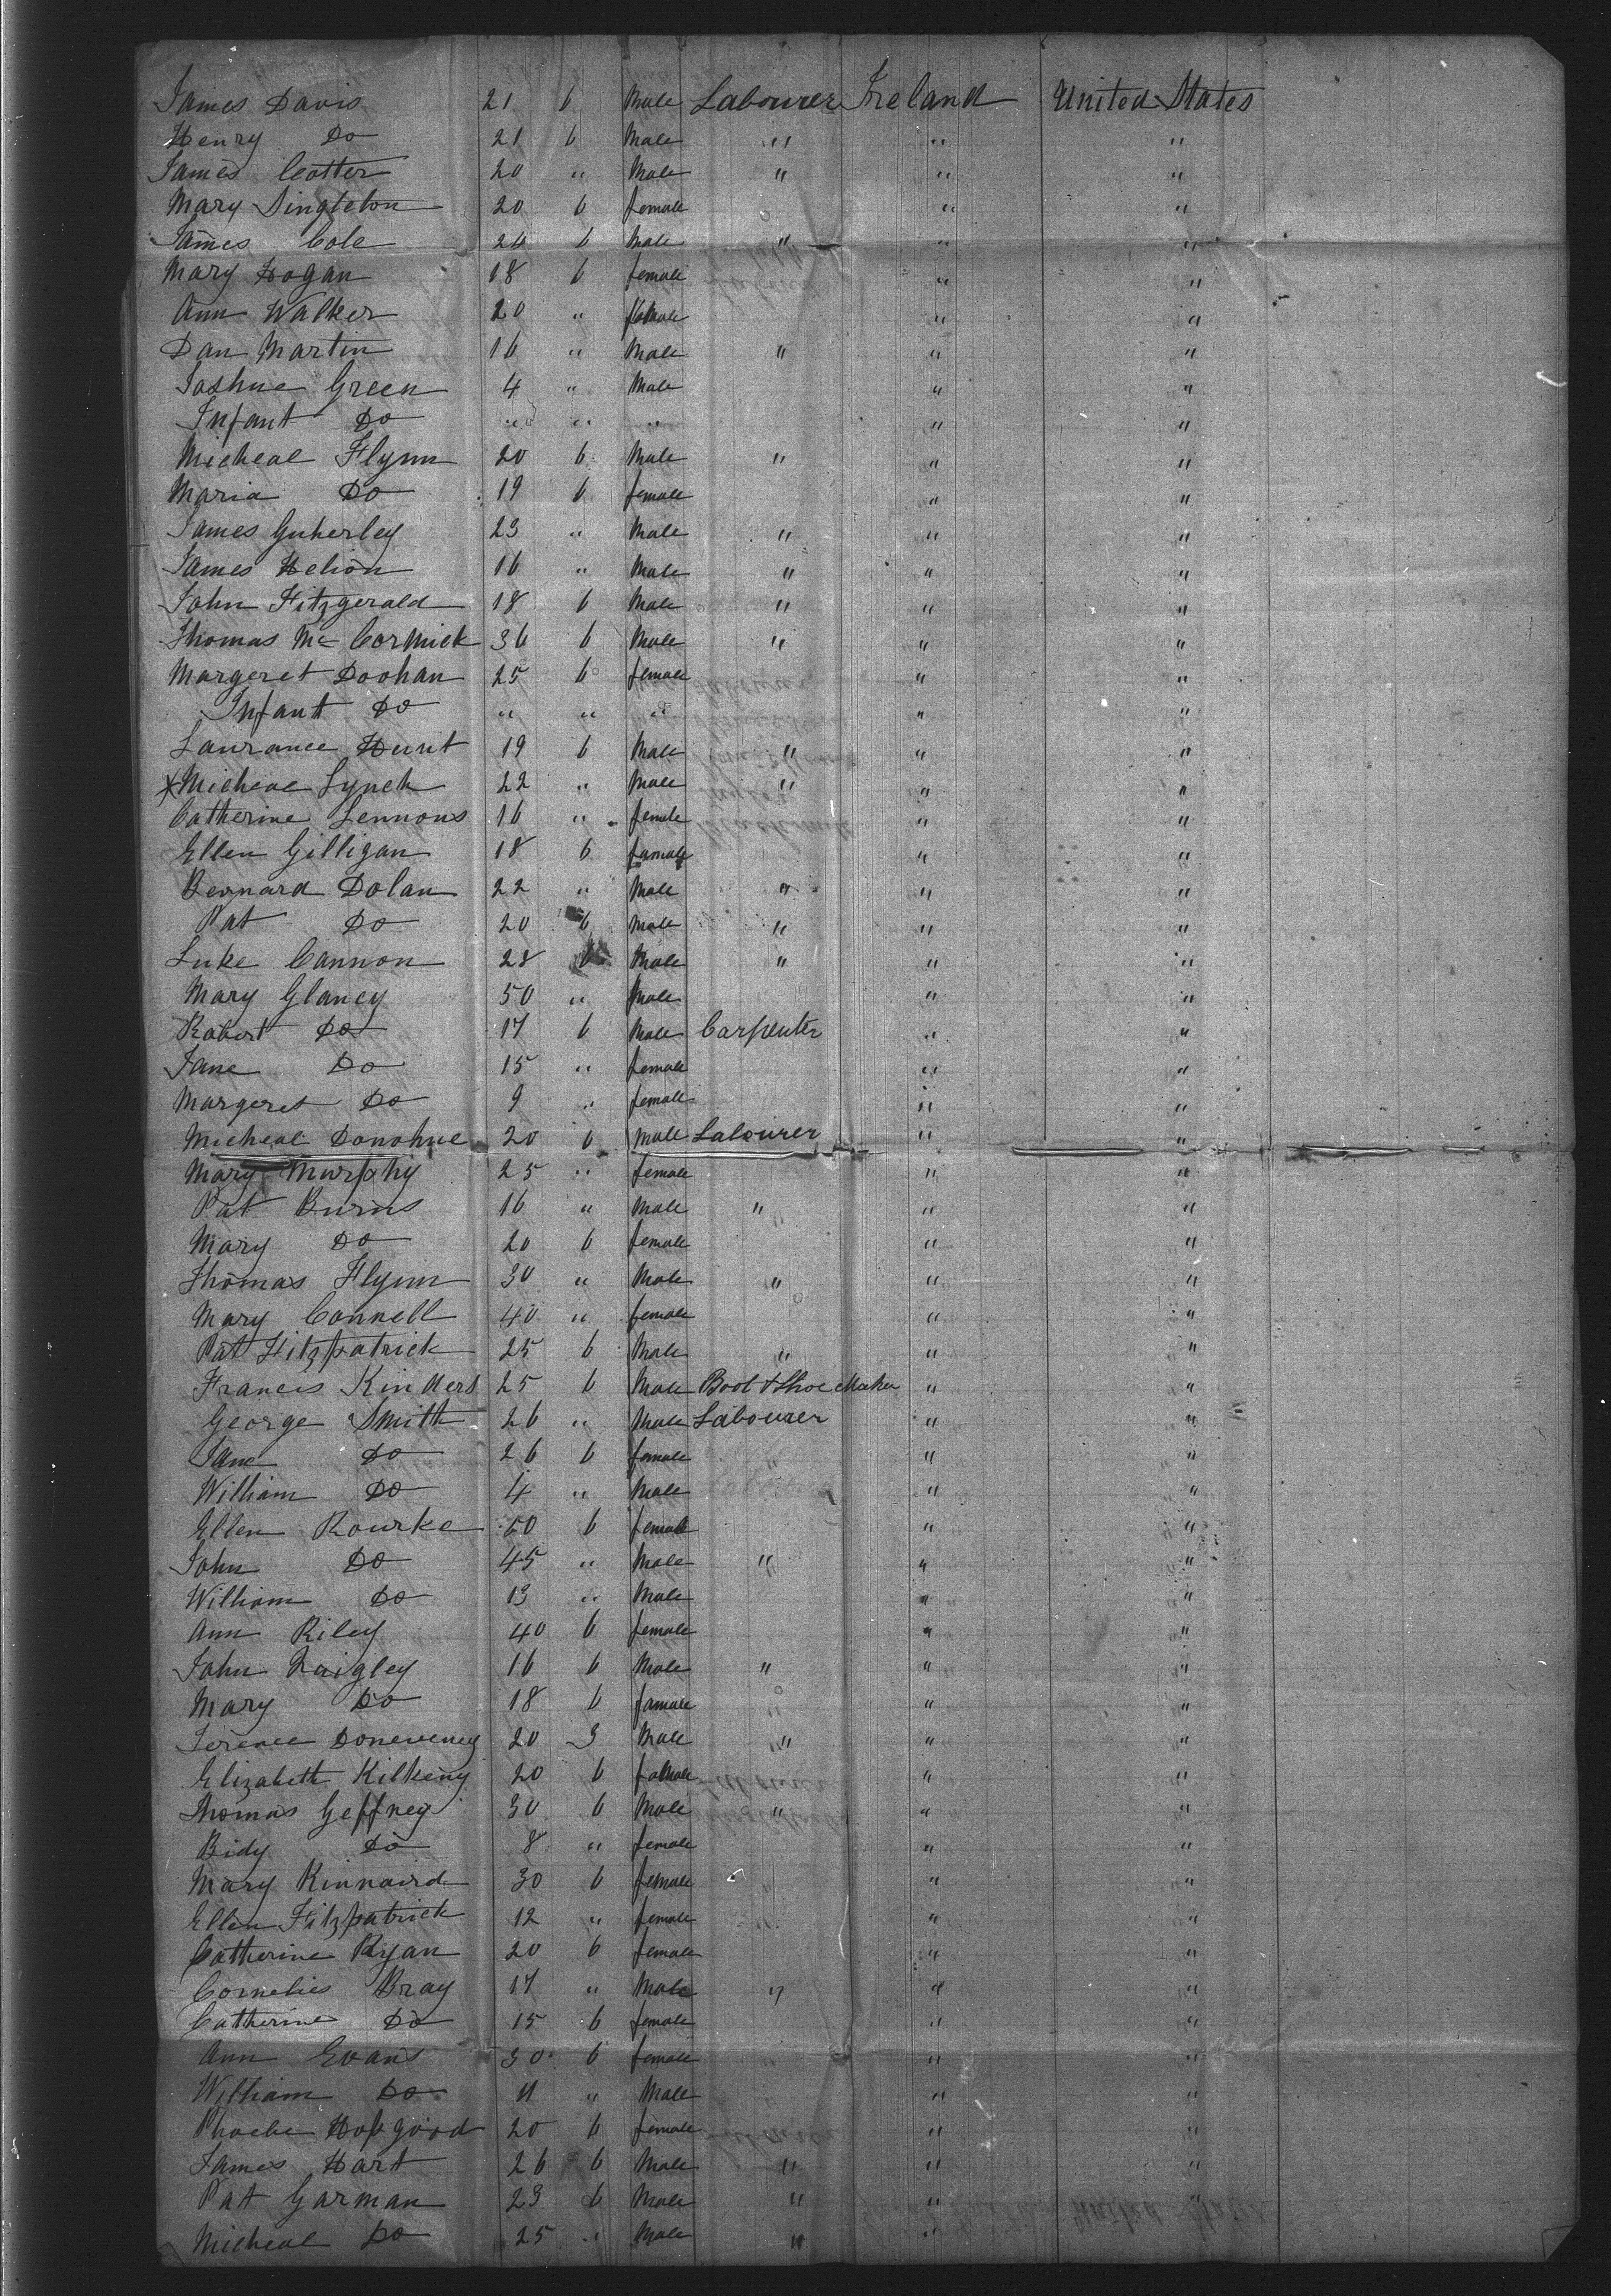 James Davis 21 6 Male Labourer Ireland United States
Henry Do 21 6 Male " " "
James Cotter 20 " Male " " "
Mary Singleton 20 6 female " "
James Cole 26 6 Male " " "
Mary Hogan 18 6 female " "
Ann Walker 20 " female " "
Dan Martin 16 " Male " " "
Joshue Green 4 " Male " "
Infant Do " " " " "
Micheal Flynn 20 6 Male " " "
Maria Do 19 6 female " "
James Guherley 23 " Male " " "
James Helion 16 " Male " " "
John Fitzgerald 18 6 Male " " "
Thomas Mc Cormick 36 6 Male " " "
Margeret Doohan 25 6 female " "
Infant Do " " " " "
Laurance Hurit 19 6 Male " " "
X Micheal Lynch 22 " Male " " "
Catherine Lennons 16 " female " "
Ellen Gilligan 18 6 female " "
Bernard Dolan 22 " Male " " "
Pat Do 20 6 Male " " "
Luke Cannon 28 6 Male " " "
Mary Glancy 50 " male " "
Robert Do 17 6 Male Carpenter " "
Jane Do 15 " female " "
Margeret Do 9 " female " "
Micheal Donohue 20 6 Male Labourer " "
Mary Murphy 25 " female " "
Pat Burns 16 " Male " " "
Mary Do 20 6 female " "
Thomas Flynn 30 " Male " " "
Mary Connell 40 " female " "
Pat Fitzpatrick 25 6 Male " " "
Francis Kinders 25 6 Male Boot & Shoe Maker " "
George Smith 26 " Male Labourer " "
Jane Do 26 6 female " "
William Do 4 " Male " "
Ellen Rourke 60 6 female " "
John Do 45 " Male " " "
William Do 13 " Male " "
Ann Riley 40 6 female " "
John Quigley 16 6 Male " " "
Mary Do 18 6 female " "
Terence Doneveney 20 3 Male " " "
Elizabeth Kilkeny 20 6 female " "
Thomas Geffney 30 6 Male " " "
Bidy Do 8 " female " "
Mary Kinnaird 30 6 female " "
Ellen Fitzpatrick 12 " female " "
Catherine Ryan 20 6 female " "
Cornelies Bray 17 " Male " " "
Catherine Do 15 6 female " "
Ann Evans 30 6 female " "
William Do 11 " Male " "
Phoebe Hopgood 20 6 female " "
James Hart 26 6 Male " " "
Pat Garman 23 6 Male " " "
Micheal Do 25 " Male " "